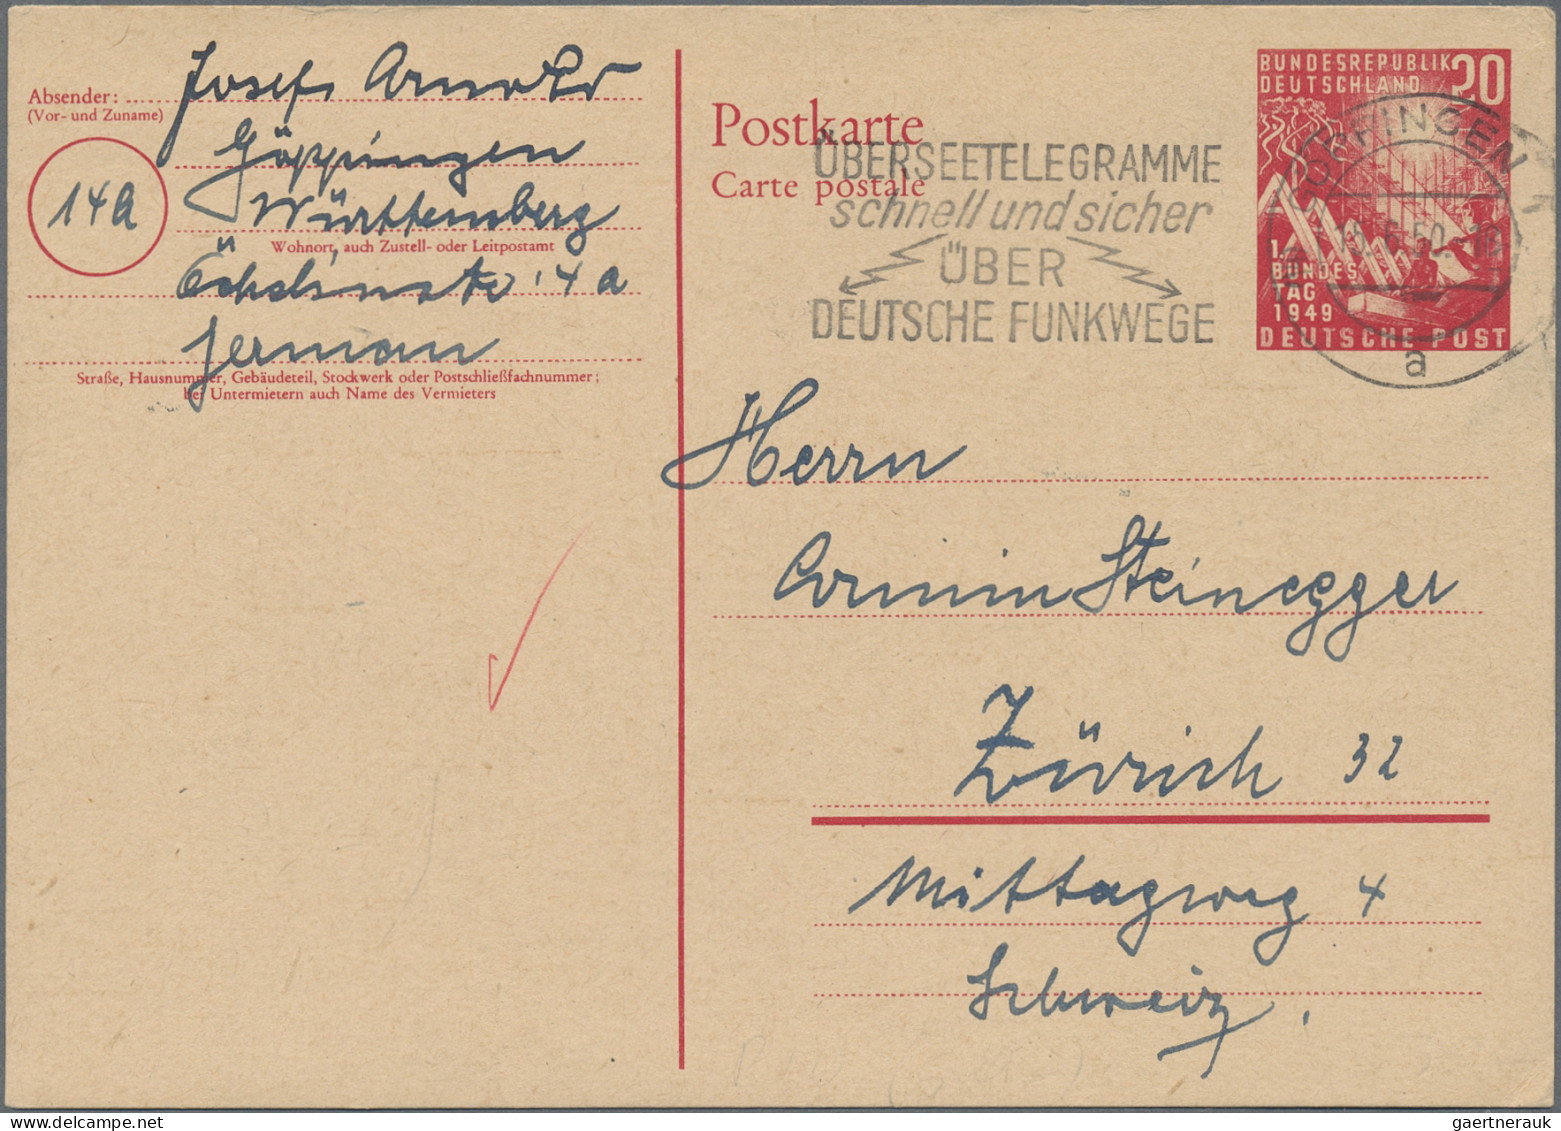 Absender:
(Vor- und Zuname)
Josef Arnold
Göppingen
14a
Württemberg
Wohnort, auch Zustell- oder Leitpostamt
14a
German
Straße, Hausnummer, Gebäudeteil, Stockwerk oder Postschließfachnummer;
bei Untermietern auch Name des Vermieters
Postkarte
Carte postale
ÜBERSEETELEGRAMME
schnell und sicher
ÜBER
DEUTSCHE FUNKWEGE
BUNDESREPUBLIK 20
DEUTSCHLAND
1.
BUNDES
TAG
1949
DEUTSCHE POST
GÖPPINGEN
15.6.50
a
Herrn
Armin Steinegger
Zürich 32
Mittagweg 4
Schweiz.
gaertnerauk